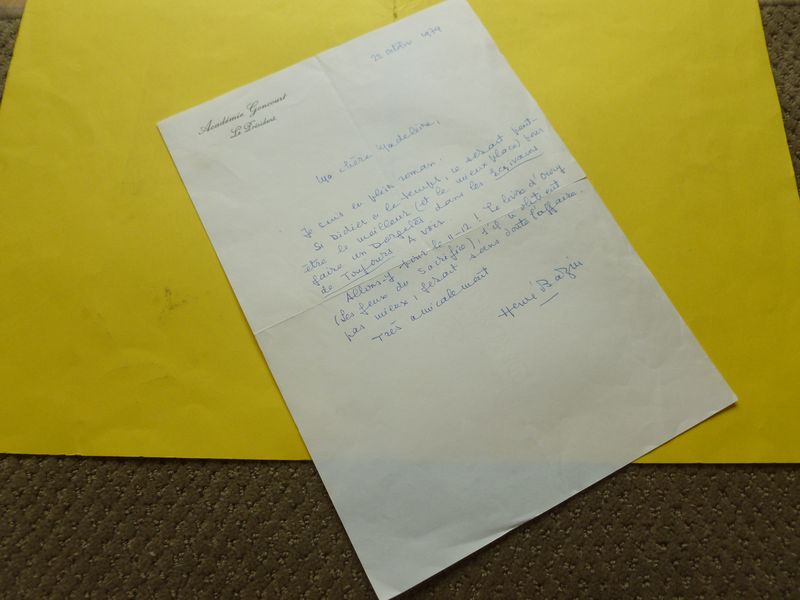 Académie Goncourt
Le Président
22 octobre 1979
Ma chère Madeleine,
Je suis en plein roman.
Si Didier a le temps, ce serait peut-
être le meilleur (et le mieux placé) pour
faire un Dorgelès dans les Écrivains
de Toujours. A voir.
Allons-y pour le 11-12! Le livre d'
(Les feux du Sacrifice), s'il n'obtient
pas mieux, ferait sans doute l'affaire.
Très amicalement
Hervé Bazin